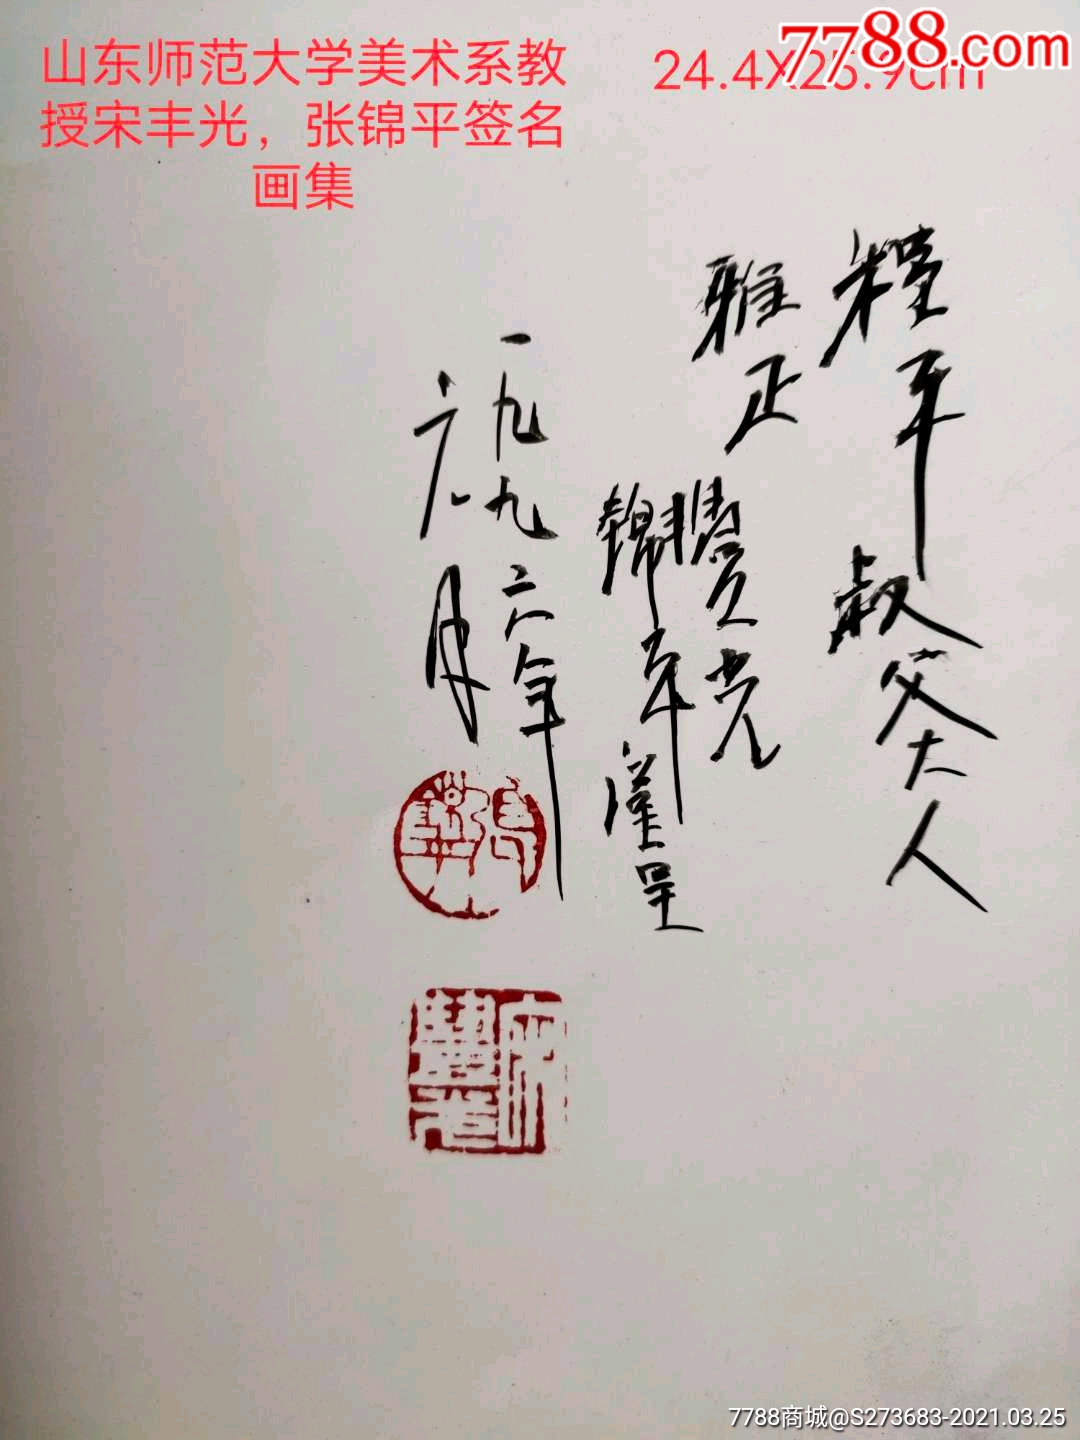 山东师范大学美术系教
授宋丰光，张锦平签名
画集
7788.com
24.4X25.9cm
程平叔父大人
雅正
豐光
锦平谨呈
一九九六年
六月
7788商城@S273683-2021.03.25